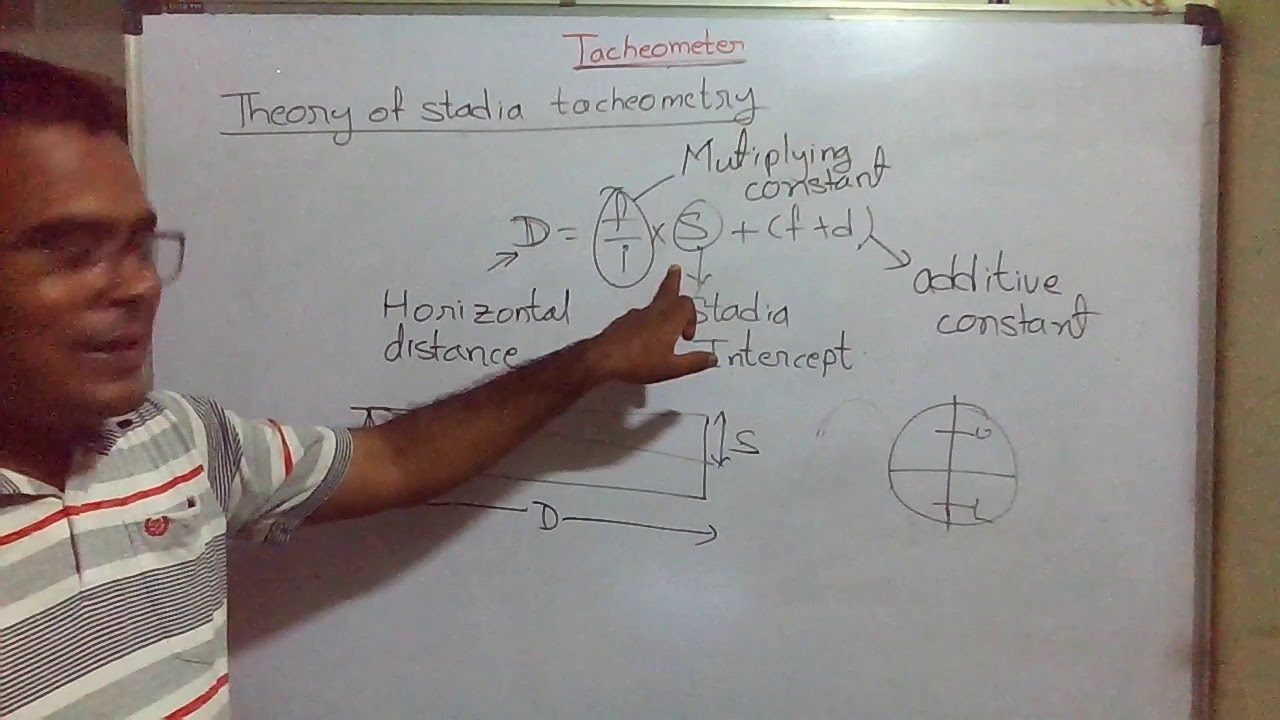 Tacheometer
Theory of stadia tacheometry
Mutiplying
constant
D = f/i × S + (f+d)
additive
constant
Horizontal
distance
Stadia
Intercept
S
D
U
L